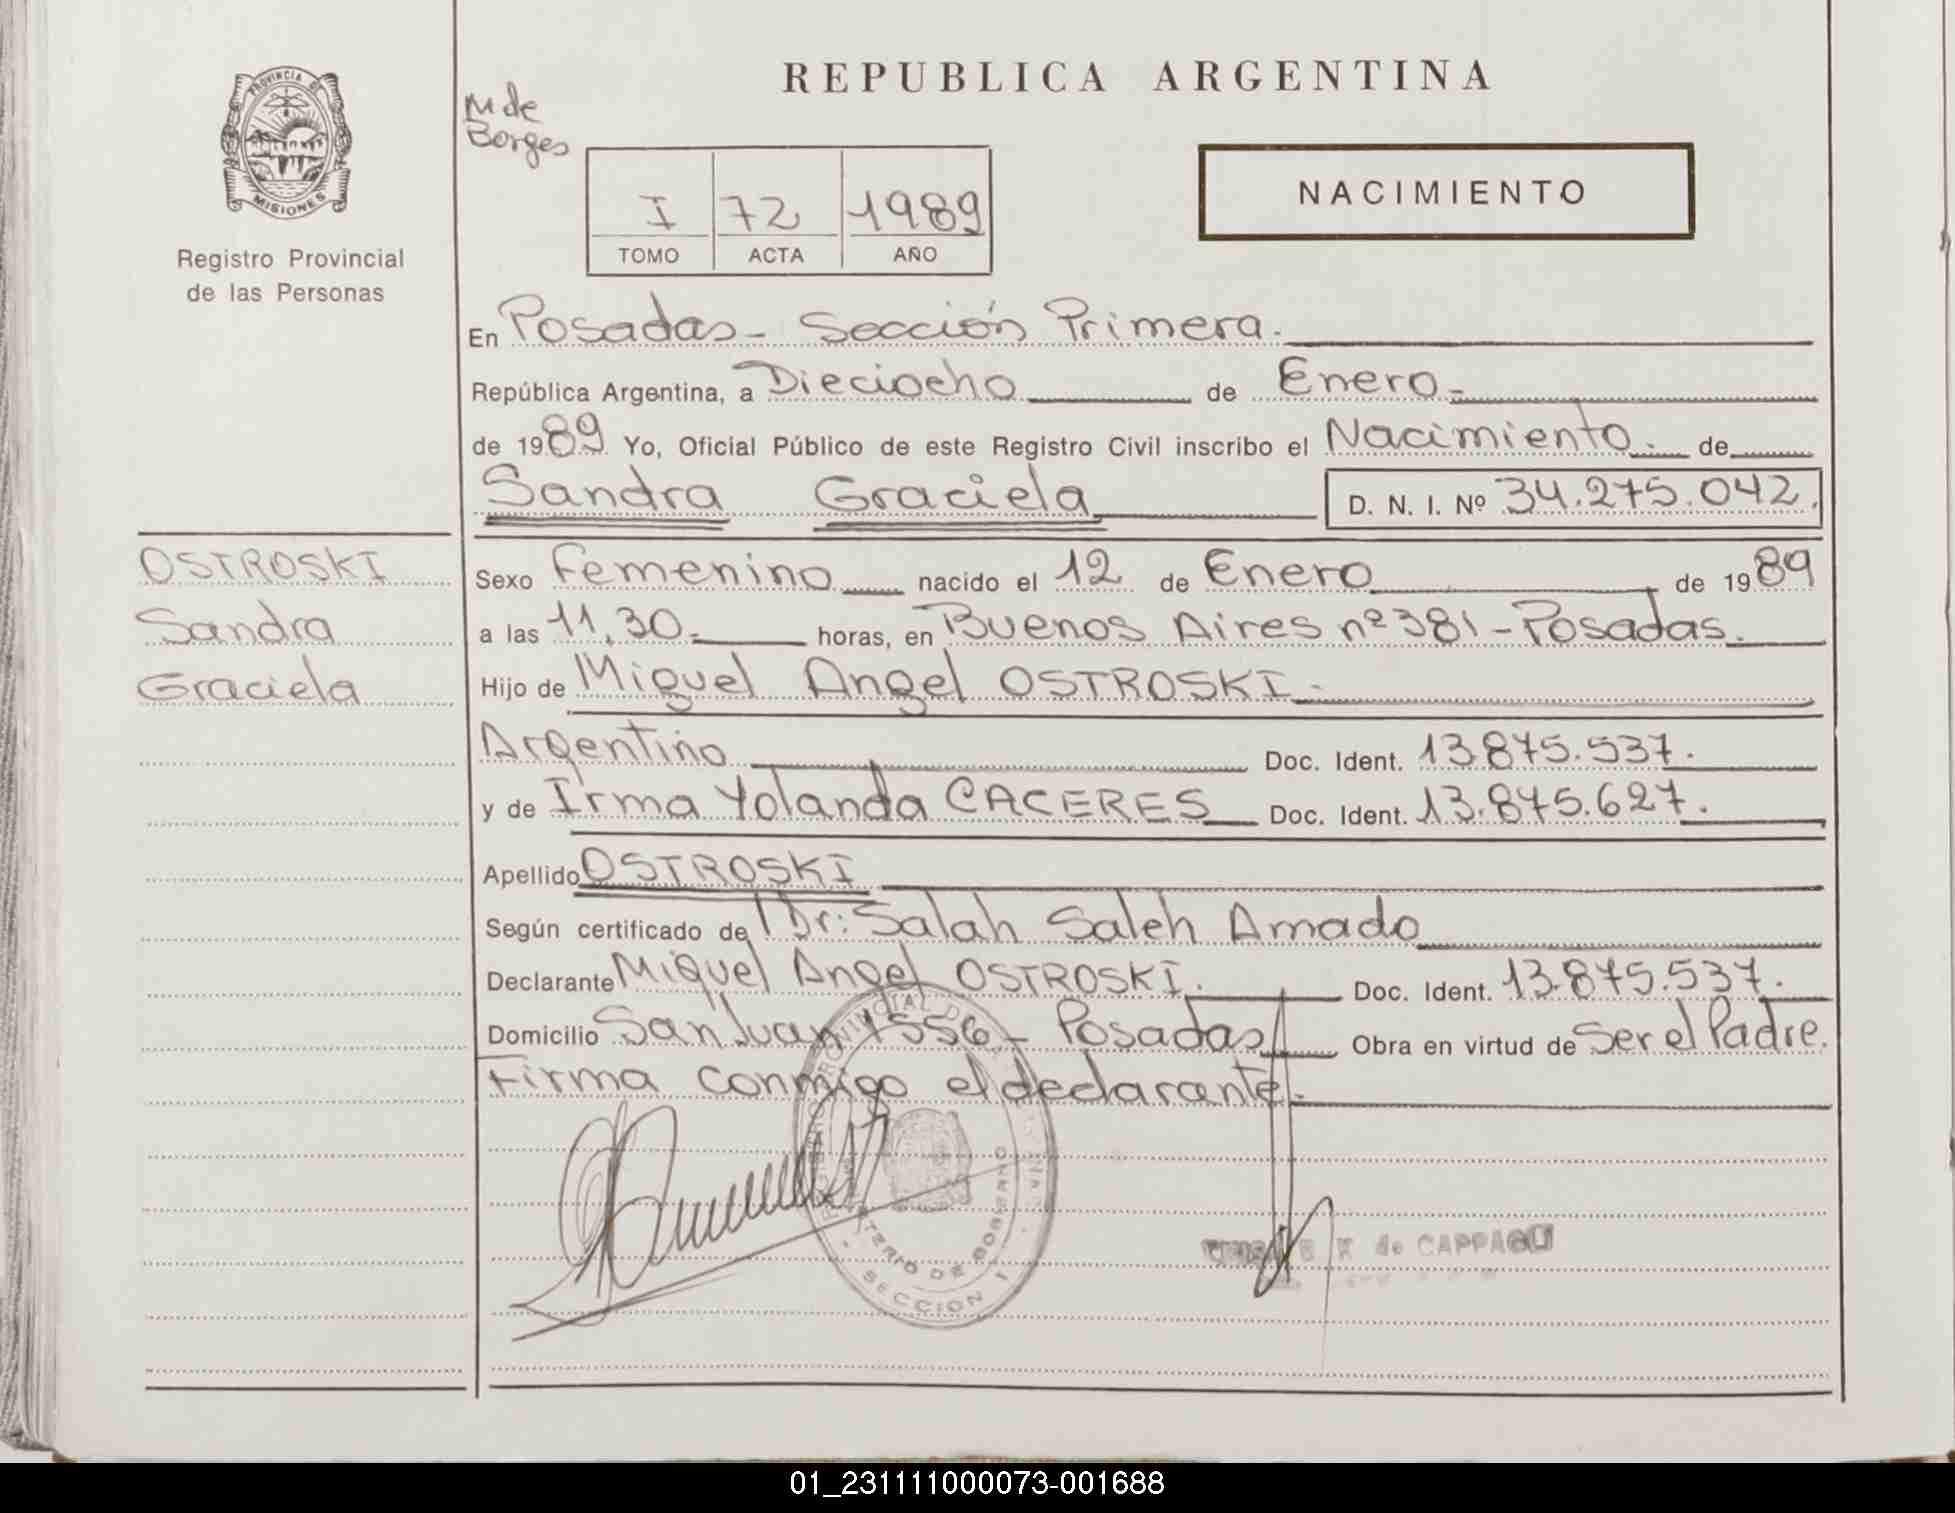 PROVINCIA DE
MISIONES
Registro Provincial
de las Personas
REPUBLICA ARGENTINA
M de
Borges
NACIMIENTO
I 72 1989
TOMO ACTA AÑO
En Posadas - Sección Primera.
República Argentina, a Dieciocho de Enero.
de 1989 Yo, Oficial Público de este Registro Civil inscribo el Nacimiento. de
Sandra Graciela D. N. I. Nº 34.275.042.
OSTROSKI
Sandra
Graciela
Sexo Femenino nacido el 12 de Enero de 1989
a las 11,30. horas, en Buenos Aires nº 381 - Posadas.
Hijo de Miguel Angel OSTROSKI.
Argentino Doc. Ident. 13.875.537.
y de Irma Yolanda CACERES Doc. Ident. 13.875.627.
Apellido OSTROSKI
Según certificado de Dr: Salah Saleh Amado
Declarante Miguel Angel OSTROSKI. Doc. Ident. 13.875.537.
Domicilio San Juan 1556 - Posadas Obra en virtud de Ser el Padre.
Firma conmigo el declarante.
REGISTRO PROVINCIAL DE LAS PERSONAS
MINISTERIO DE GOBIERNO
SECCION 1
de CAPPAGLI
01_231111000073-001688